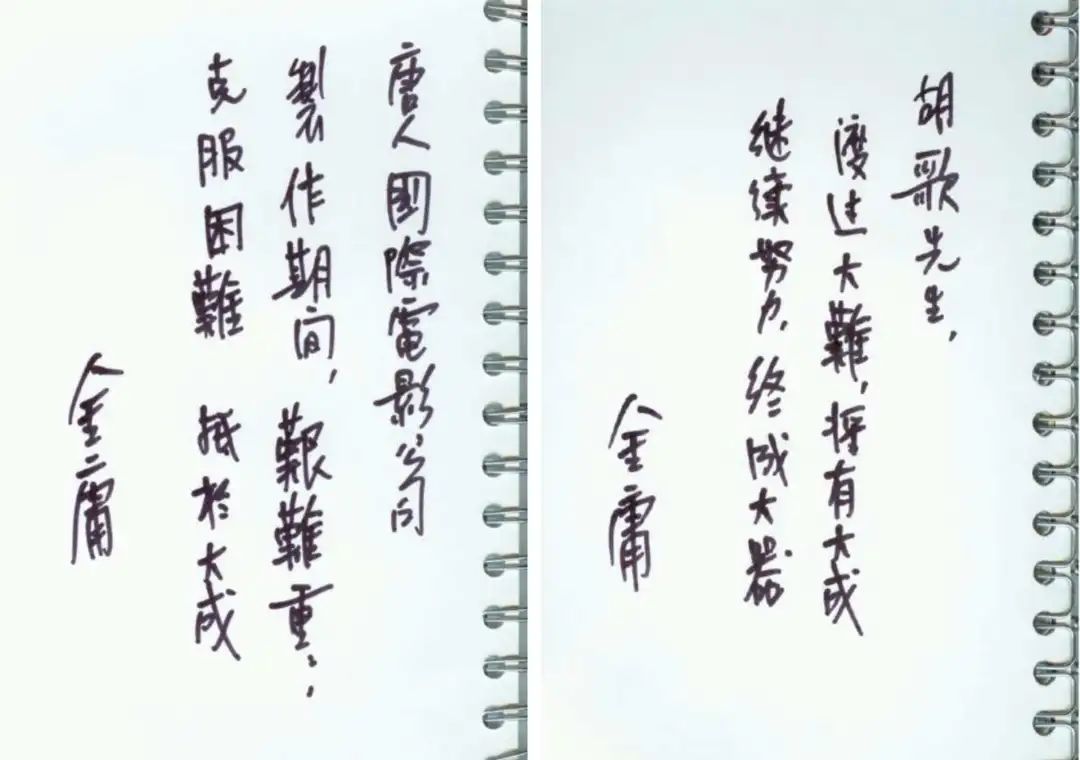 唐人國際電影公司
製作期间,艱難重:,
克服困難 抵於大成
金庸
胡歌先生,
渡过大難,将有大成
继续努力,终成大器
金庸